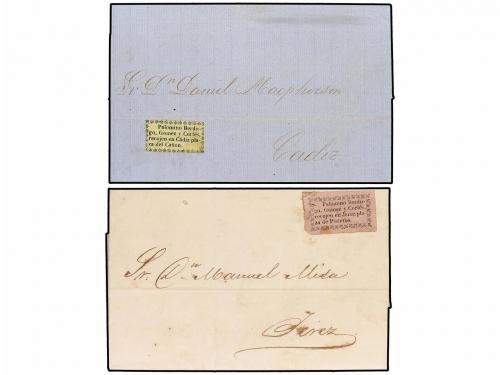 Sr. Dn. Daniel Macpherson
Palomino Berdu-
go, Gomez y Cortés,
recojen en Cádiz pla-
za del Cañon.
Cadiz
Palomino Berdu-
go, Gomez y Cortés,
recojen en Jerez pla-
za de Plateros.
Sr. Dn. Manuel Misa
Jerez